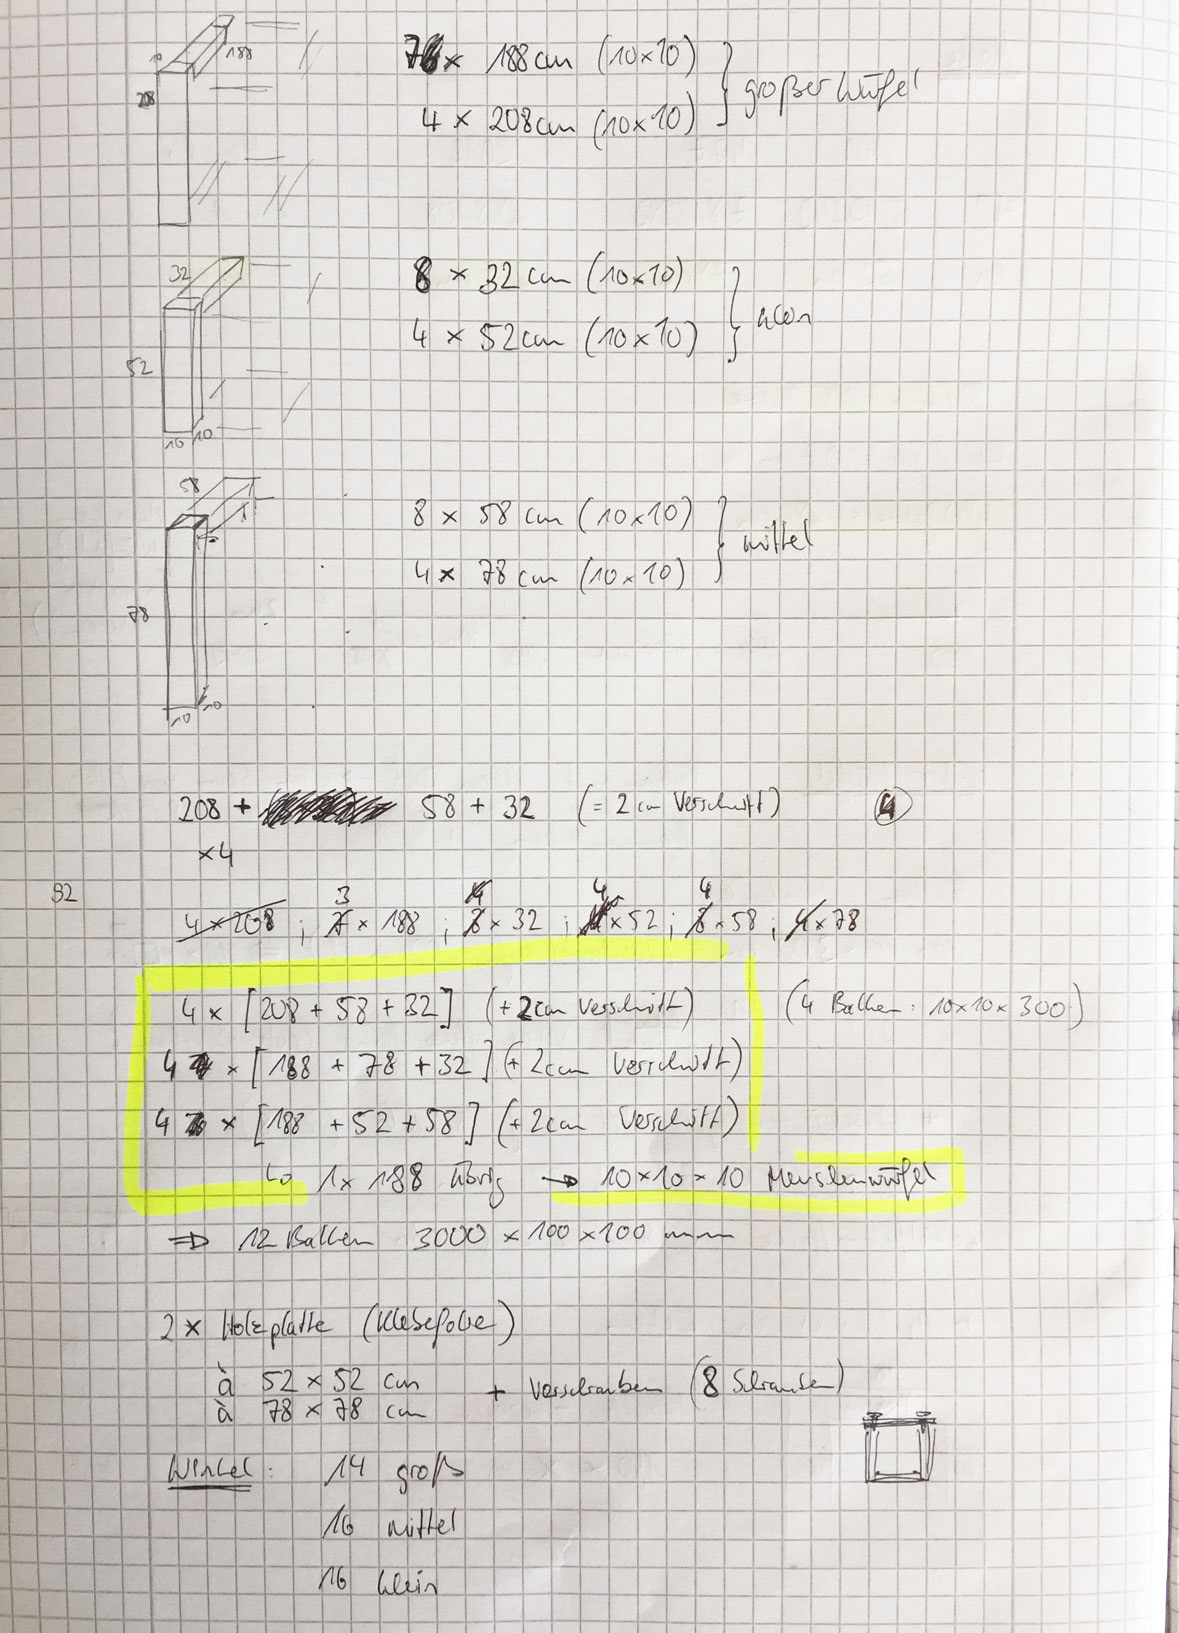 10 188
208
7 x 188 cm (10x10)
4 x 208 cm (10x10)
großer Würfel
32
52
10 10
8 x 32 cm (10x10)
4 x 52 cm (10x10)
klein
58
78
10 10
8 x 58 cm (10x10)
4 x 78 cm (10x10)
mittel
208 + 58 + 32 (= 2 cm Verschnitt) 4
x4
92
3 4 4 4
4 x 208 ; 7 x 188 ; 8 x 32 ; 4 x 52 ; 8 x 58 ; 4 x 78
4 x [208 + 58 + 32] (+ 2 cm Verschnitt) (4 Balken: 10x10x300)
4 x [188 + 78 + 32] (+ 2 cm Verschnitt)
4 x [188 + 52 + 58] (+ 2 cm Verschnitt)
↳ 1x 188 übrig → 10x10x10 Menschenwürfel
⇒ 12 Balken 3000 x 100 x 100 mm
2 x Holzplatte (Klebefolie)
à 52 x 52 cm + Verschrauben (8 Schrauben)
à 78 x 78 cm
Winkel: 14 groß
16 mittel
16 klein